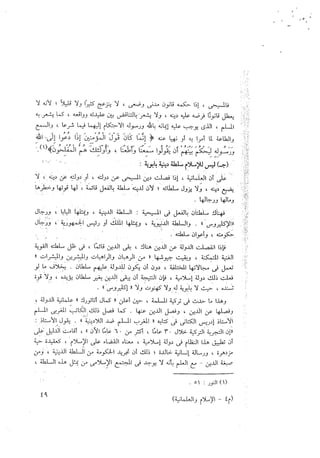 فالمسيحى ، إذا حكمه قانون مدنى وضعى ، لا ينزعج كثيرًا ولا قليلاً ؛ لأنه لا
يعطل قانونًا فرضه عليه دينه ، ولا يشعر بالتناقض بين عقيدته وواقعه ، كما يشعر به
المسلم ، الذى يوجب عليه إيمانه بالله ورسوله الاحتكام إليهما فيما شرعا ، والسمع
والطاعة لما أمرا به أو نهيا عنه ﴿ إِنَّمَا كَانَ قَوْلَ الْمُؤْمِنِينَ إِذَا دُعُوا إِلَى اللَّهِ
وَرَسُولِهِ لِيَحْكُمَ بَيْنَهُمْ أَن يَقُولُوا سَمِعْنَا وَأَطَعْنَا ، وَأُولَٰئِكَ هُمُ الْمُفْلِحُونَ ﴾(١).
(جـ) ليس للإسلام سلطة دينية بابوية :
على أن العلمانية ، إذا فصلت دين المسيحى عن دولته ، أو دولته عن دينه ، لا
يضيع دينه ، ولا يزول سلطانه ؛ لأن لدينه سلطة بالفعل قائمة ، لها قوتها وخطرها
ومالها ورجالها.
فهناك سلطتان بالفعل فى المسيحية : السلطة الدينية ، ويمثلها البابا ، ورجال
«الإكليروس» . والسلطة الدنيوية ، ويمثلها الملك أو رئيس الجمهورية ، ورجال
حكومته ، وأعوان سلطته .
فإذا انفصلت الدولة عن الدين هناك ، بقى الدين قائمًا ، فى ظل سلطته القوية
الغنية المتمكنة ، وبقيت جيوشها ، من الرهبان والراهبات والمبشرين والمبشرات ؛
تعمل فى مجالاتها المختلفة ، دون أن يكون للدولة عليهم سلطان . بخلاف ما لو
فعلت ذلك دولة إسلامية ، فإن النتيجة أن يبقى الدين بغير سلطان يؤيده ، ولا قوة
تسنده ، حيث لا بابوية له ولا كهنوت ولا «إكليروس» .
وهذا ما حدث فى تركية المسلمة ، حين أعلن «كمال أتاتورك» علمانية الدولة ،
وفصلها عن الدين ، وفصل الدين عنها . كما فصل ذلك الكاتب المغربى المسلم
الأستاذ إدريس الكتانى فى كتابه «المغرب المسلم ضد اللادينية» . يقول الأستاذ :
«إن التجربة التركية خلال ٣٠ عامًا ، أكثر من ٦٠ عامًا الآن ، أقامت الدليل على
أن تطبيق هذا النظام فى دولة إسلامية ، معناه القضاء على الإسلام ، كعقيدة حية
مزدهرة ، ورسالة إنسانية خالدة ؛ ذلك أن تجريد الحكومة من السلطة الدينية ، ومن
صبغة الدين - مع العلم بأنه لا يوجد فى المجتمع الإسلامى من يمثل هذه السلطة ،
(١) النور : ٥١ .
(م٤ - الإسلام والعلمانية)
٤٩